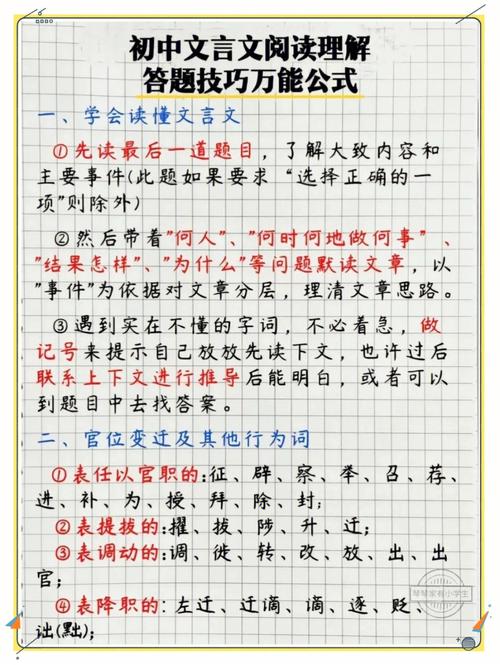 初中文言文阅读理解
答题技巧万能公式
一、学会读懂文言文
①先读最后一道题目，了解大致内容和
主要事件(此题如果要求“选择正确的一
项”则除外)
②然后带着"何人"、"何时何地做何事"、
"结果怎样"、"为什么"等问题默读文章，以
"事件"为依据对文章分层，理清文章思路。
③遇到实在不懂的字词，不必着急，做
记号来提示自己放放先读下文，也许过后
联系上下文进行推导后能明白，或者可以
到题目中去找答案。
二、官位变迁及其他行为词
①表任以官职的:征、辟、察、举、召、荐、
进、补、为、授、拜、除、封;
②表提拔的:擢、拔、陟、升、迁;
③表调动的:调、徙、转、改、放、出、出
官;
④表降职的: 左迁、迁谪、谪、逐、贬、
诎(黜);
琴琴家有小学生